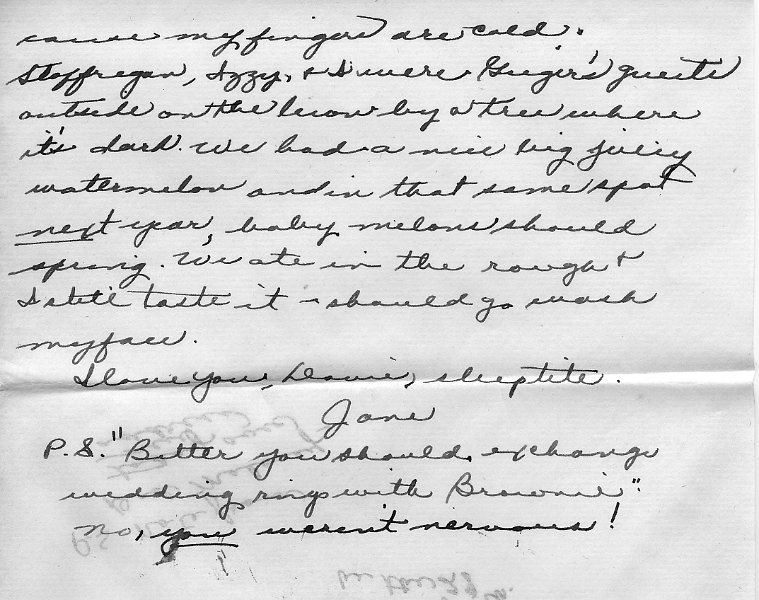 cause my fingers are cold.
Stoffregan, Izzy, & I were Geiger's guests
outside on the lawn by a tree where
it's dark. We had a nice big juicy
watermelon and in that same spot
next year, baby melons should
spring. We ate in the rough &
I still taste it - should go wash
my face.
I love you, Davie, sleeptite.
Jane
P.S. "Better you should exchange
wedding rings with Brownie".
No, you weren't nervous!